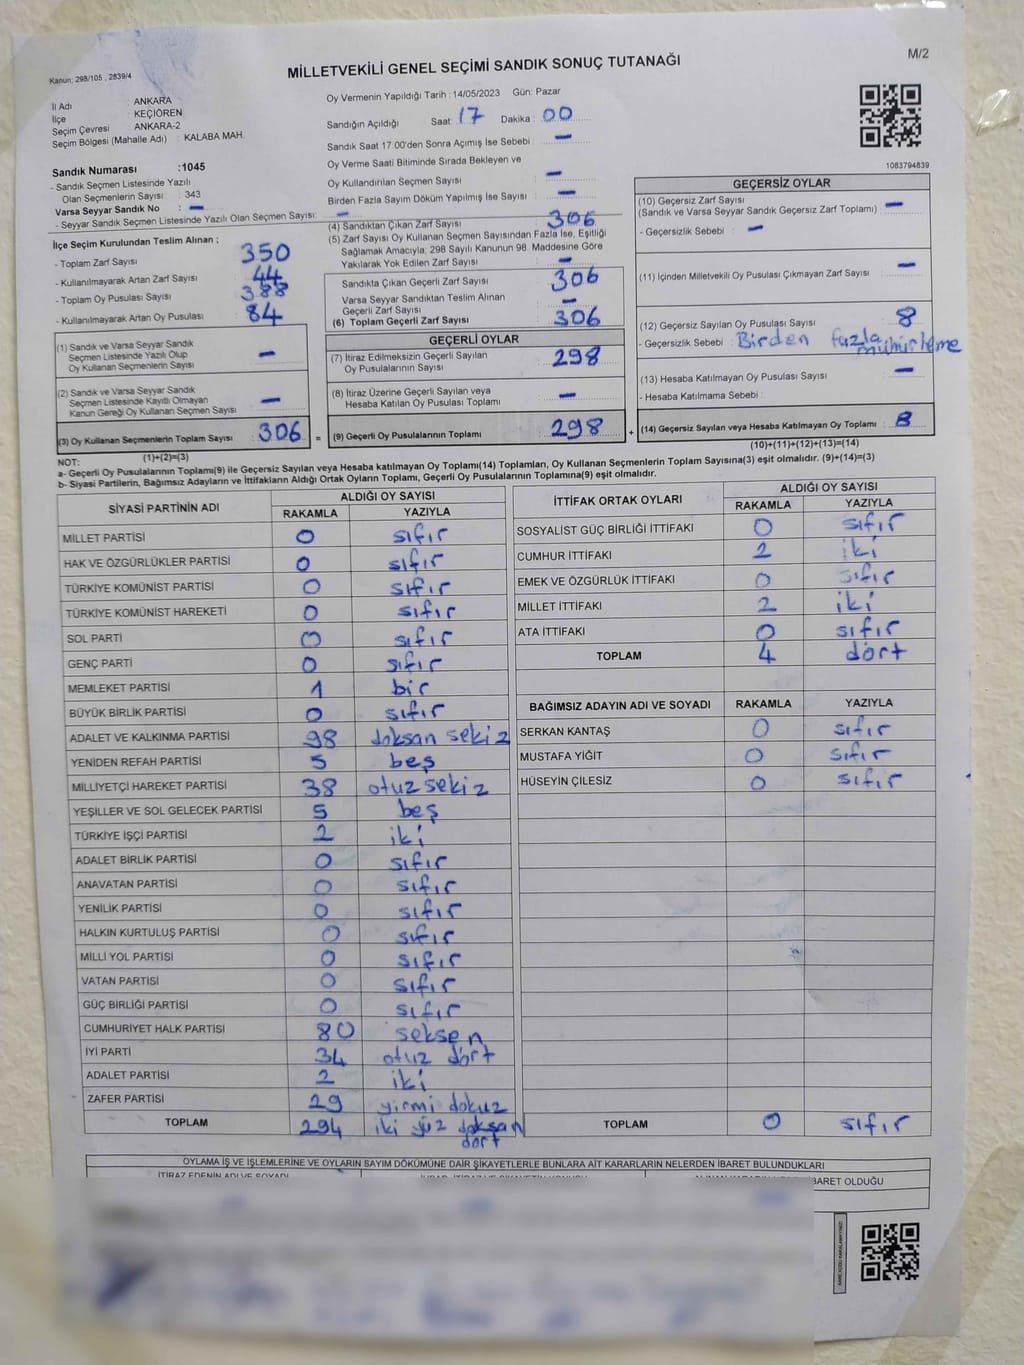 Kanun; 298/105 , 2839/4
MİLLETVEKİLİ GENEL SEÇİMİ SANDIK SONUÇ TUTANAĞI
M/2
İl Adı : ANKARA
İlçe : KEÇİÖREN
Seçim Çevresi : ANKARA-2
Seçim Bölgesi (Mahalle Adı) : KALABA MAH.
Sandık Numarası :1045
- Sandık Seçmen Listesinde Yazılı
Olan Seçmenlerin Sayısı : 343
Varsa Seyyar Sandık No : -
- Seyyar Sandık Seçmen Listesinde Yazılı Olan Seçmen Sayısı: -
Oy Vermenin Yapıldığı Tarih : 14/05/2023 Gün: Pazar
Sandığın Açıldığı Saat: 17 Dakika : 00
Sandık Saat 17.00'den Sonra Açımış İse Sebebi : -
Oy Verme Saati Bitiminde Sırada Bekleyen ve
Oy Kullandırılan Seçmen Sayısı : -
Birden Fazla Sayım Döküm Yapılmış İse Sayısı : -
1083794839
İlçe Seçim Kurulundan Teslim Alınan ;
- Toplam Zarf Sayısı : 350
- Kullanılmayarak Artan Zarf Sayısı : 44
- Toplam Oy Pusulası Sayısı : 388
- Kullanılmayarak Artan Oy Pusulası : 84
(1) Sandık ve Varsa Seyyar Sandık
Seçmen Listesinde Yazılı Olup
Oy Kullanan Seçmenlerin Sayısı : -
(2) Sandık ve Varsa Seyyar Sandık
Seçmen Listesinde Kayıtlı Olmayan
Kanun Gereği Oy Kullanan Seçmen Sayısı : -
(3) Oy Kullanan Seçmenlerin Toplam Sayısı : 306 =
(1)+(2)=(3)
(4) Sandıktan Çıkan Zarf Sayısı : 306
(5) Zarf Sayısı Oy Kullanan Seçmen Sayısından Fazla İse, Eşitliği
Sağlamak Amacıyla; 298 Sayılı Kanunun 98. Maddesine Göre
Yakılarak Yok Edilen Zarf Sayısı : -
Sandıkta Çıkan Geçerli Zarf Sayısı : 306
Varsa Seyyar Sandıktan Teslim Alınan
Geçerli Zarf Sayısı : -
(6) Toplam Geçerli Zarf Sayısı : 306
GEÇERLİ OYLAR
(7) İtiraz Edilmeksizin Geçerli Sayılan
Oy Pusulalarının Sayısı : 298
(8) İtiraz Üzerine Geçerli Sayılan veya
Hesaba Katılan Oy Pusulası Toplamı : -
(9) Geçerli Oy Pusulalarının Toplamı : 298 +
GEÇERSİZ OYLAR
(10) Geçersiz Zarf Sayısı
(Sandık ve Varsa Seyyar Sandık Geçersiz Zarf Toplamı) : -
- Geçersizlik Sebebi : -
(11) İçinden Milletvekili Oy Pusulası Çıkmayan Zarf Sayısı : -
(12) Geçersiz Sayılan Oy Pusulası Sayısı : 8
- Geçersizlik Sebebi : Birden fazla
mühürleme
(13) Hesaba Katılmayan Oy Pusulası Sayısı : -
- Hesaba Katılmama Sebebi :
(14) Geçersiz Sayılan veya Hesaba Katılmayan Oy Toplamı : 8
(10)+(11)+(12)+(13)=(14)
NOT:
a- Geçerli Oy Pusulalarının Toplamı(9) ile Geçersiz Sayılan veya Hesaba katılmayan Oy Toplamı(14) Toplamları, Oy Kullanan Seçmenlerin Toplam Sayısına(3) eşit olmalıdır. (9)+(14)=(3)
b- Siyasi Partilerin, Bağımsız Adayların ve İttifakların Aldığı Ortak Oyların Toplamı, Geçerli Oy Pusulalarının Toplamına(9) eşit olmalıdır.
SİYASİ PARTİNİN ADI ALDIĞI OY SAYISI
RAKAMLA YAZIYLA
MİLLET PARTİSİ 0 sıfır
HAK VE ÖZGÜRLÜKLER PARTİSİ 0 sıfır
TÜRKİYE KOMÜNİST PARTİSİ 0 sıfır
TÜRKİYE KOMÜNİST HAREKETİ 0 sıfır
SOL PARTİ 0 sıfır
GENÇ PARTİ 0 sıfır
MEMLEKET PARTİSİ 1 bir
BÜYÜK BİRLİK PARTİSİ 0 sıfır
ADALET VE KALKINMA PARTİSİ 98 doksan sekiz
YENİDEN REFAH PARTİSİ 5 beş
MİLLİYETÇİ HAREKET PARTİSİ 38 otuz sekiz
YEŞİLLER VE SOL GELECEK PARTİSİ 5 beş
TÜRKİYE İŞÇİ PARTİSİ 2 iki
ADALET BİRLİK PARTİSİ 0 sıfır
ANAVATAN PARTİSİ 0 sıfır
YENİLİK PARTİSİ 0 sıfır
HALKIN KURTULUŞ PARTİSİ 0 sıfır
MİLLİ YOL PARTİSİ 0 sıfır
VATAN PARTİSİ 0 sıfır
GÜÇ BİRLİĞİ PARTİSİ 0 sıfır
CUMHURİYET HALK PARTİSİ 80 seksen
İYİ PARTİ 34 otuz dört
ADALET PARTİSİ 2 iki
ZAFER PARTİSİ 29 yirmi dokuz
TOPLAM 294 iki yüz doksan
dört
İTTİFAK ORTAK OYLARI ALDIĞI OY SAYISI
RAKAMLA YAZIYLA
SOSYALİST GÜÇ BİRLİĞİ İTTİFAKI 0 sıfır
CUMHUR İTTİFAKI 2 iki
EMEK VE ÖZGÜRLÜK İTTİFAKI 0 sıfır
MİLLET İTTİFAKI 2 iki
ATA İTTİFAKI 0 sıfır
TOPLAM 4 dört
BAĞIMSIZ ADAYIN ADI VE SOYADI RAKAMLA YAZIYLA
SERKAN KANTAŞ 0 sıfır
MUSTAFA YİĞİT 0 sıfır
HÜSEYİN ÇİLESİZ 0 sıfır
TOPLAM 0 sıfır
OYLAMA İŞ VE İŞLEMLERİNE VE OYLARIN SAYIM DÖKÜMÜNE DAİR ŞİKAYETLERLE BUNLARA AİT KARARLARIN NELERDEN İBARET BULUNDUKLARI
İTİRAZ EDENİN ADI VE SOYADI
BARET OLDUĞU